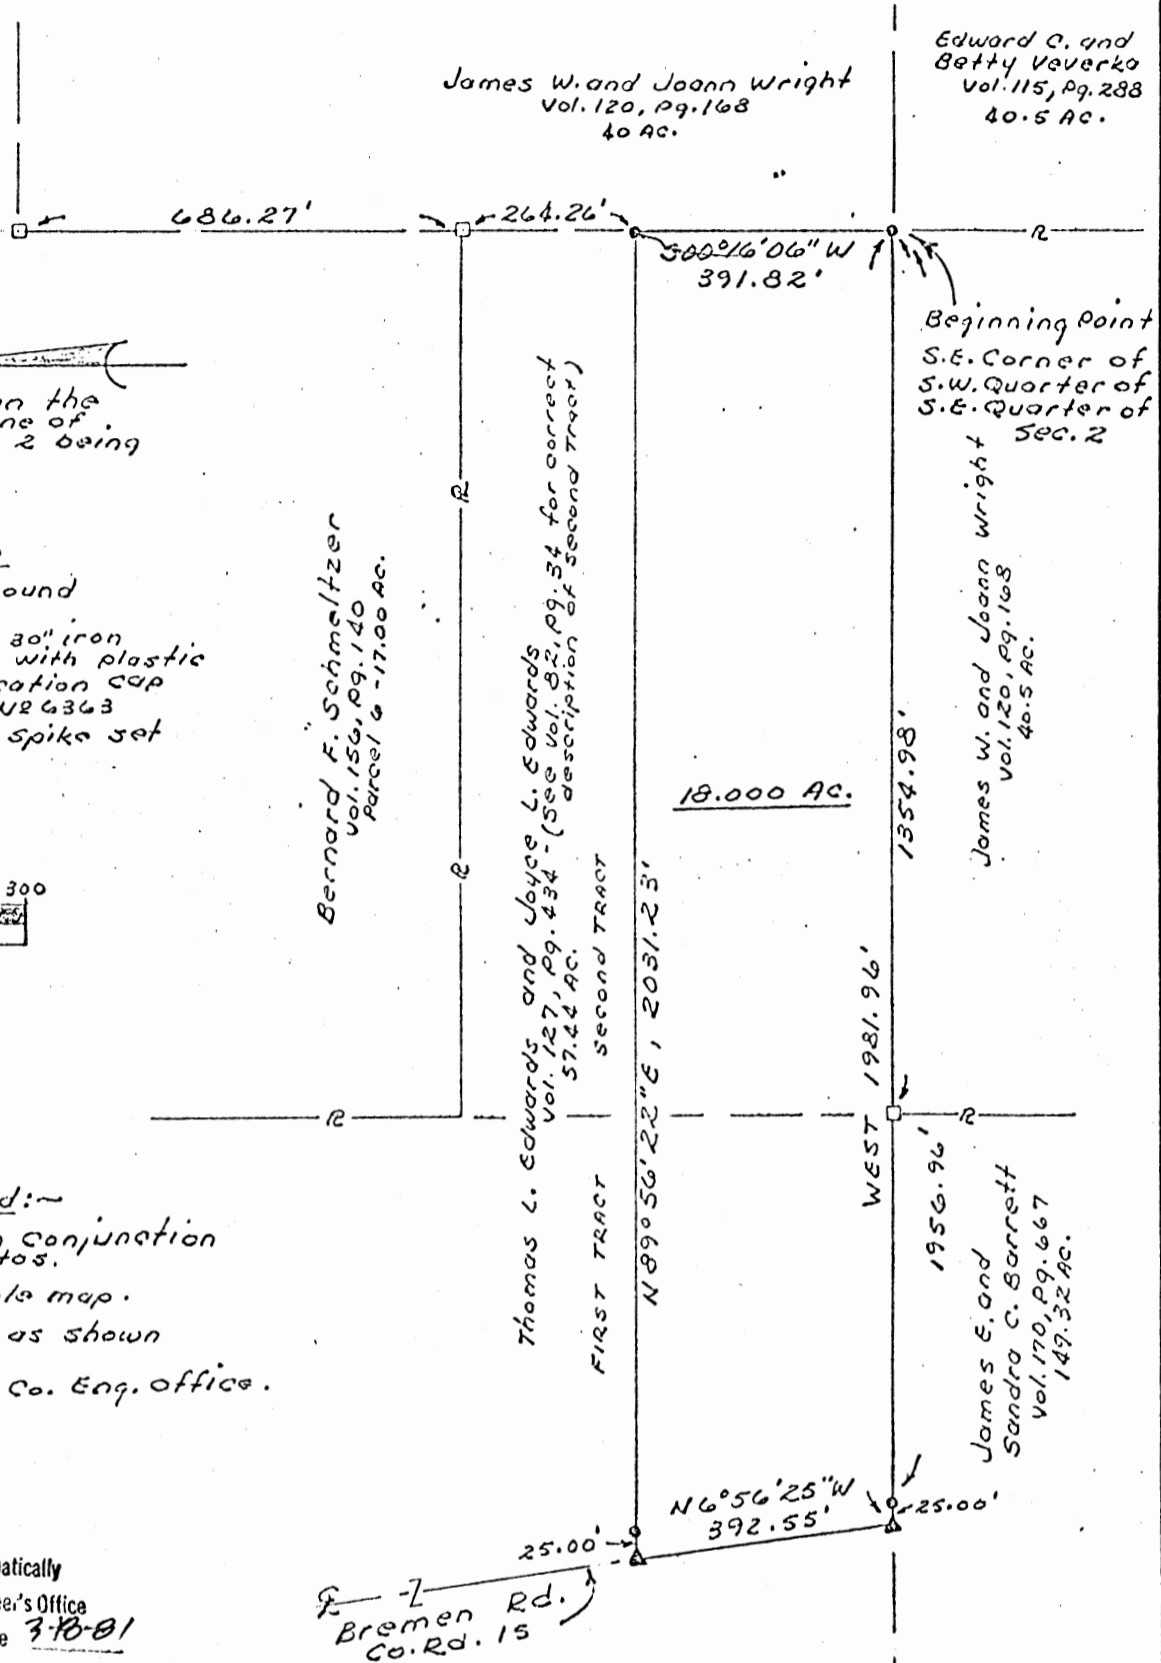 James W. and Joann Wright
Vol. 120, Pg. 168
40 Ac.
Edward C. and
Betty Veverka
Vol. 115, Pg. 288
40.5 Ac.
686.27'
264.26'
R
S00°16'06"W
391.82'
Beginning Point
S.E. Corner of
S.W. Quarter of
S.E. Quarter of
Sec. 2
on the
ne of
2 being
ound
30" iron
with plastic
cation cap
Nº 6363
spike set
300
Bernard F. Schmeltzer
Vol. 156, Pg. 140
Parcel 6 - 17.00 Ac.
R
R
R
Thomas L. Edwards and Joyce L. Edwards
Vol. 127, Pg. 434 - (See Vol. 82, Pg. 34 for correct
description of second Tract)
57.44 Ac.
FIRST TRACT
SECOND TRACT
N89°56'22"E, 2031.23'
18.000 Ac.
WEST 1981.96'
1354.98'
James W. and Joann Wright
Vol. 120, Pg. 168
40.5 Ac.
R
1956.96'
James E. and
Sandra C. Barrett
Vol. 170, Pg. 667
149.32 Ac.
d:~
conjunction
tos.
le map.
as shown
Co. Eng. office.
N6°56'25"W
392.55'
25.00'
25.00'
Bremen Rd.
Co. Rd. 15
atically
er's Office
e 3-18-81